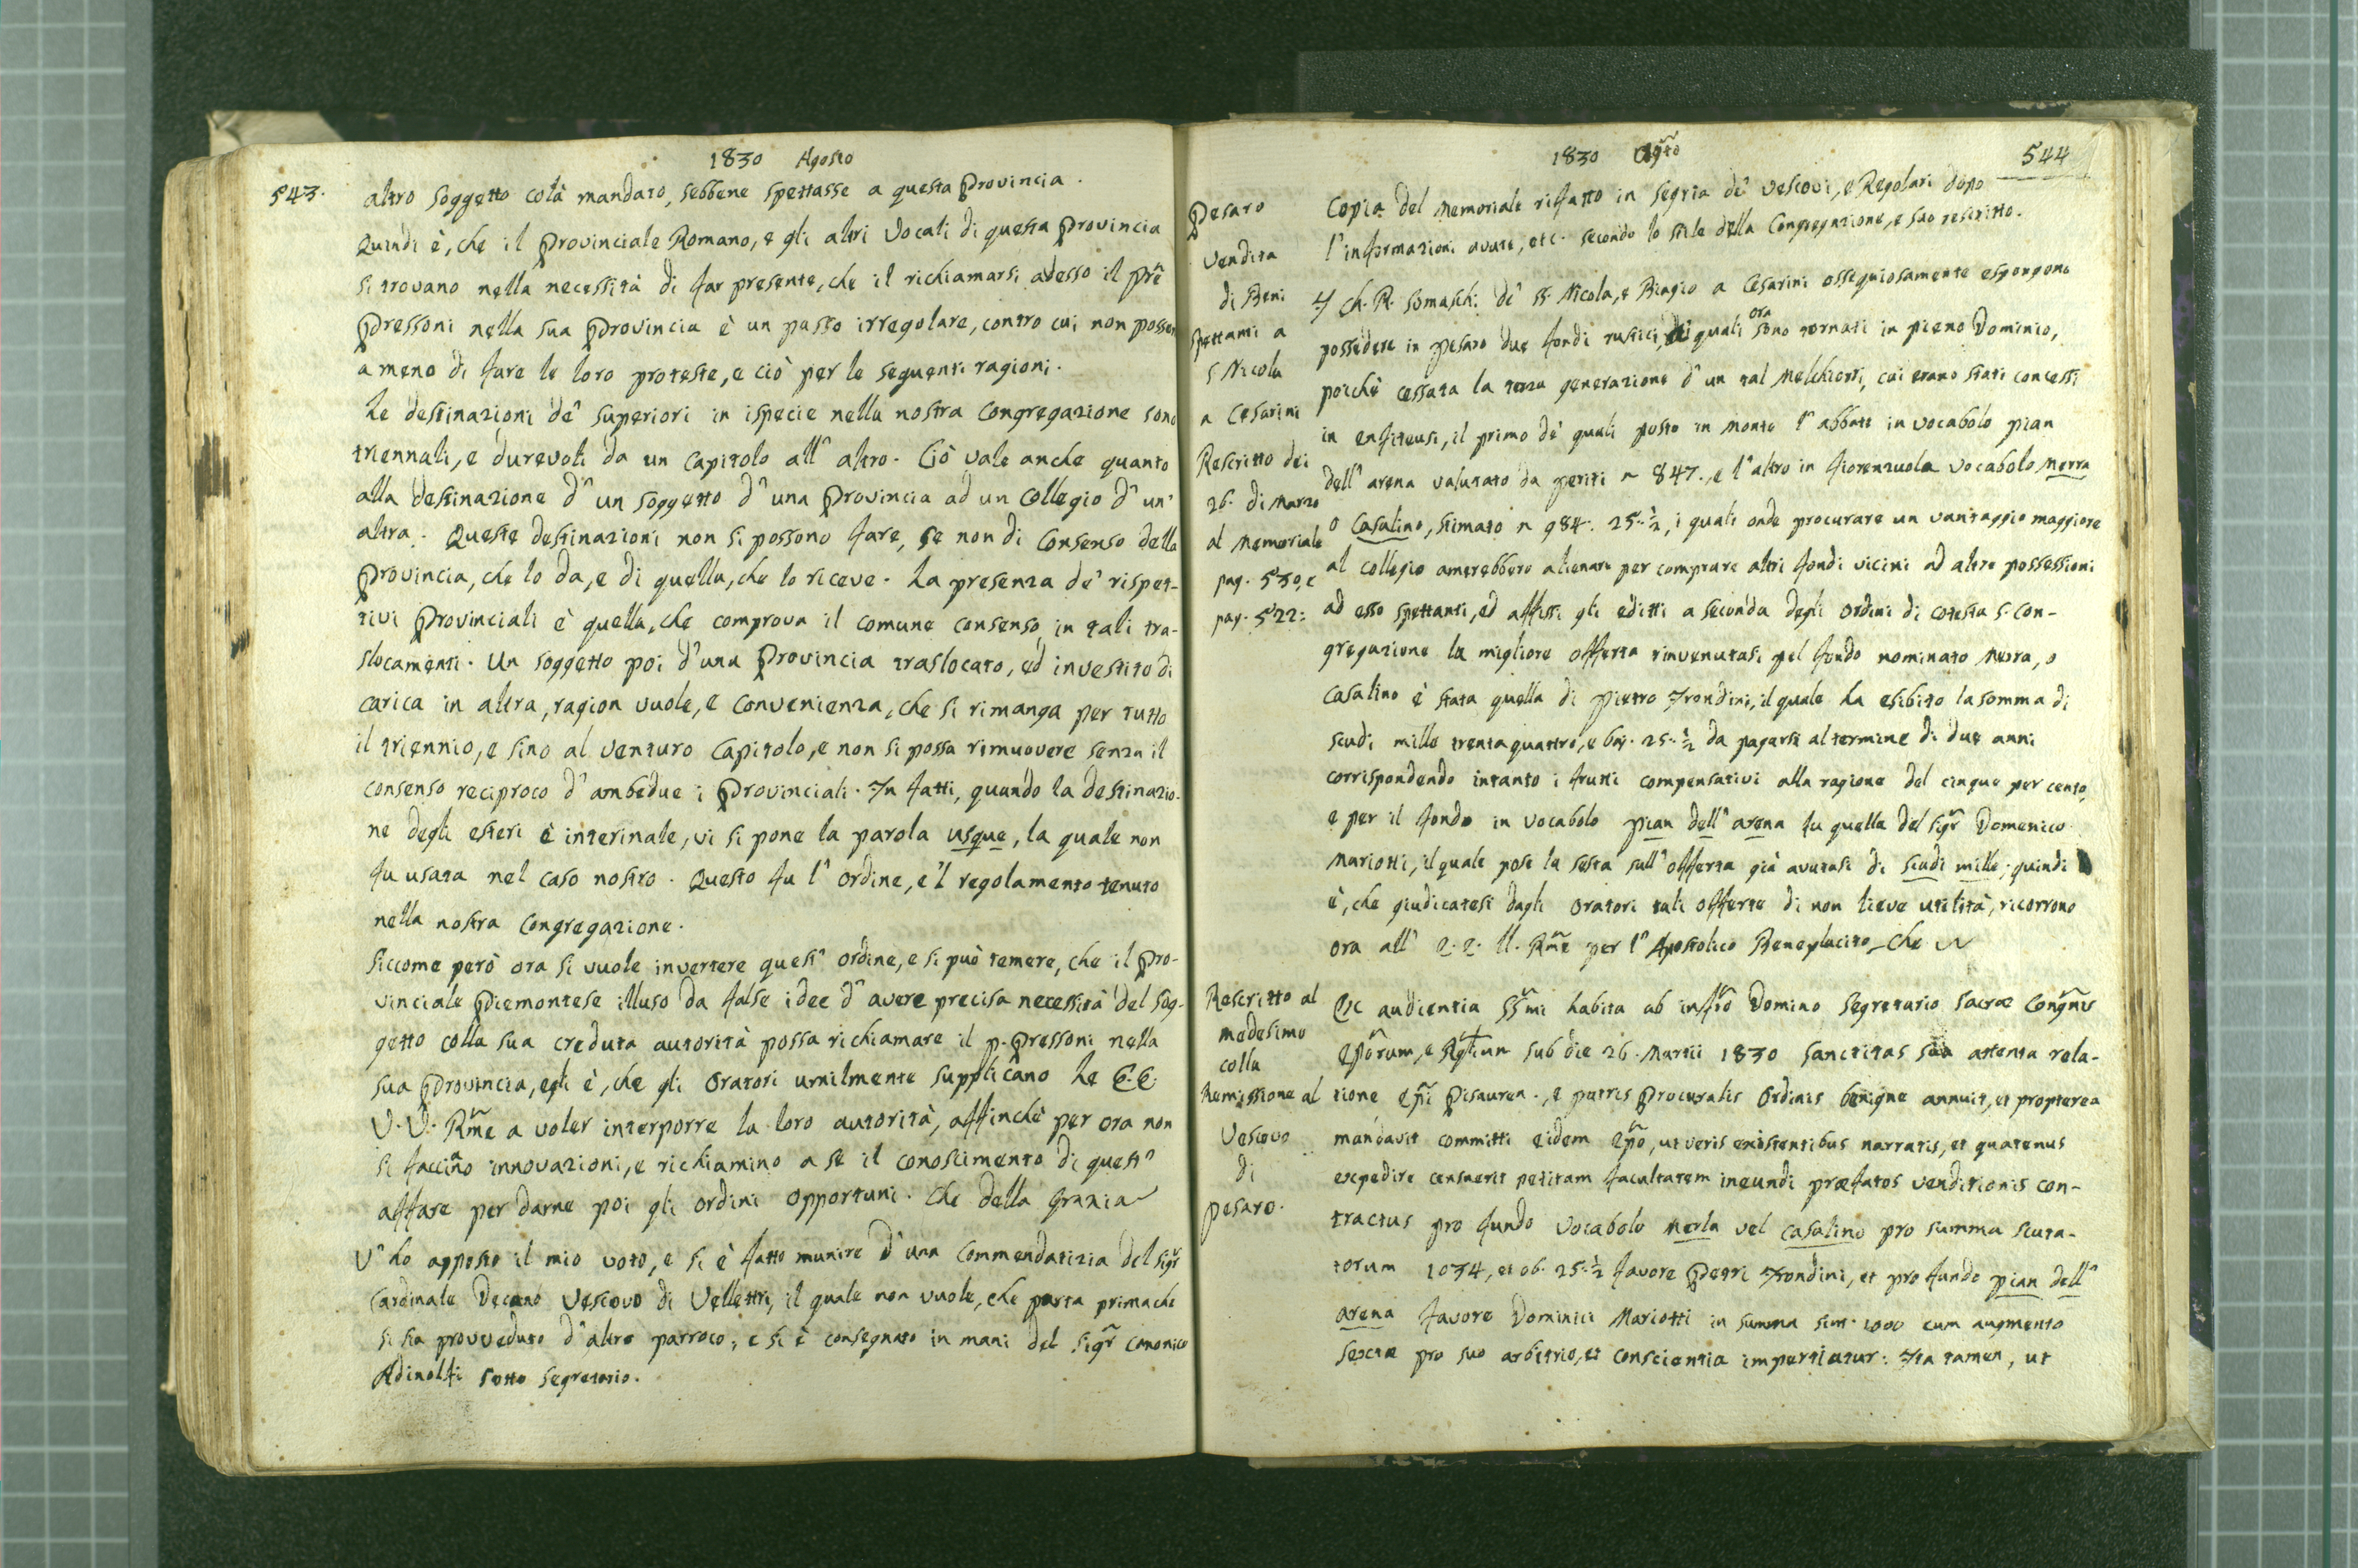 1830 Agosto
543.
altro soggetto colà mandato, sebbene spettasse a questa Provincia.
Quindi è, che il Provinciale Romano, e gli altri Vocali di questa Provincia
si trovano nella necessità di far presente, che il richiamarsi adesso il Prē
Pressoni nella sua Provincia è un passo irregolare, contro cui non posson
a meno di fare le loro proteste, e ciò per le seguenti ragioni.
Le destinazioni de' superiori in ispecie nella nostra Congregazione sono
triennali, e durevoli da un Capitolo all' altro. Ciò vale anche quanto
alla destinazione d' un soggetto d' una Provincia ad un Collegio d' un'
altra. Queste destinazioni non si possono fare, se non di Consenso della
Provincia, che lo da, e di quella, che lo riceve. La presenza de' rispet-
tivi Provinciali è quella, che comprova il comune consenso in tali tra-
slocamenti. Un soggetto poi d' una Provincia traslocato, ed investito di
carica in altra, ragion vuole, e convenienza, che si rimanga per tutto
il triennio, e sino al venturo Capitolo, e non si possa rimuovere senza il
consenso reciproco d' ambedue i Provinciali. In fatti, quando la destinazio-
ne degli esteri è interinale, vi si pone la parola usque, la quale non
fu usata nel caso nostro. Questo fu l' ordine, e 'l regolamento tenuto
nella nostra Congregazione.
Siccome però ora si vuole invertere quest' ordine, e si può temere, che il Pro-
vinciale Piemontese illuso da false idee d' avere precisa necessità del sog-
getto colla sua creduta autorità possa richiamare il P. Pressoni nella
sua Provincia, egli è, che gli Oratori umilmente supplicano Le E.E.
V.V. Rm̃e a voler interporre la loro autorità, affinchè per ora non
si faccino innovazioni, e richiamino a se il conoscimento di quest'
affare per darne poi gli ordini opportuni. Che della Grazia
V' ho apposto il mio voto, e si è fatto munire d' una Commendatizia del Sigr̃
Cardinale Decano Vescovo di Vellettri, il quale non vuole, che parta prima che
si sia provveduto d' altro parroco; e si è consegnato in mani del Sigr̃ Canonico
Adinolfi sotto segretario.
1830 Ag̃to
544
Pesaro
Vendita
di Beni
spettanti a
S Nicola
a Cesarini
Rescritto dei
26. di Marzo
al Memoriale
pag. 530, e
pag. 522:
Copia del Memoriale rifatto in Segria de' Vescovi, e Regolari dopo
l' informazioni avute, etc. secondo lo stile della Congregazione, e suo rescritto.
I Ch. R. Somaschi de' SS. Nicola, e Biagio a Cesarini ossequiosamente espongono
possedere in Pesaro due fondi rustici, i quali ora sono tornati in pieno Dominio,
poichè cessata la terza generazione d' un tal Melchiorri, cui erano stati concessi
in enfiteusi, il primo de' quali posto in Monte l' abbate in vocabolo pian
dell' arena valutato da periti ~ 847., e l' altro in fiorenzuola vocabolo Merra
o Casalino, stimato ~ 984. 25.½, i quali onde procurare un vantaggio maggiore
al collegio amerebbero alienare per comprare altri fondi vicini ad altre possessioni
ad esso spettanti, ed affissi gli editti a seconda degli ordini di cotesta S. Con-
gregazione la migliore offerta rinvenutasi pel fondo nominato Merra, o
Casalino è stata quella di Pietro Frondini, il quale ha esibito la somma di
scudi mille trentaquattro, e baj. 25.½ da pagarsi al termine di due anni
corrispondendo intanto i frutti compensativi alla ragione del cinque per cento,
e per il fondo in vocabolo pian dell' arena fu quella del Sigr̃ Domenico
Mariotti, il quale pose la sesta sull' offerta già avutasi di scudi mille; quindi
è, che giudicatesi dagli Oratori tali offerte di non lieve utilità, ricorrono
ora all' E.E. VV. Rm̃e per l' Apostolico Beneplacito. Che
Rescritto al
medesimo
colla
Remissione al
Vescovo
di
Pesaro.
Ex audientia SSm̃i habita ab infr̃o Domino Segretario Sacræ Congñis
Epõrum, e Rg̃lium sub die 26. Martii 1830 Sanctitas sua attenta rela-
tione Ep̃i Pisauren., e patris Procuralis Ordinis benigne annuit, et propterea
mandavit committi eidem Ep̃o, ut veris existentibus narratis, et quatenus
expedire censuerit petitam facultatem ineundi præfatos venditionis con-
tractus pro fundo vocabolo Merla vel Casalino pro summa scuta-
torum 1034, et ob. 25.½ favore Petri Frondini, et pro fundo pian dell'
arena favore Dominici Mariotti in summa scut. 1000 cum augmento
sextæ pro suo arbitrio, et conscientia impertiatur: Ita tamen, ut